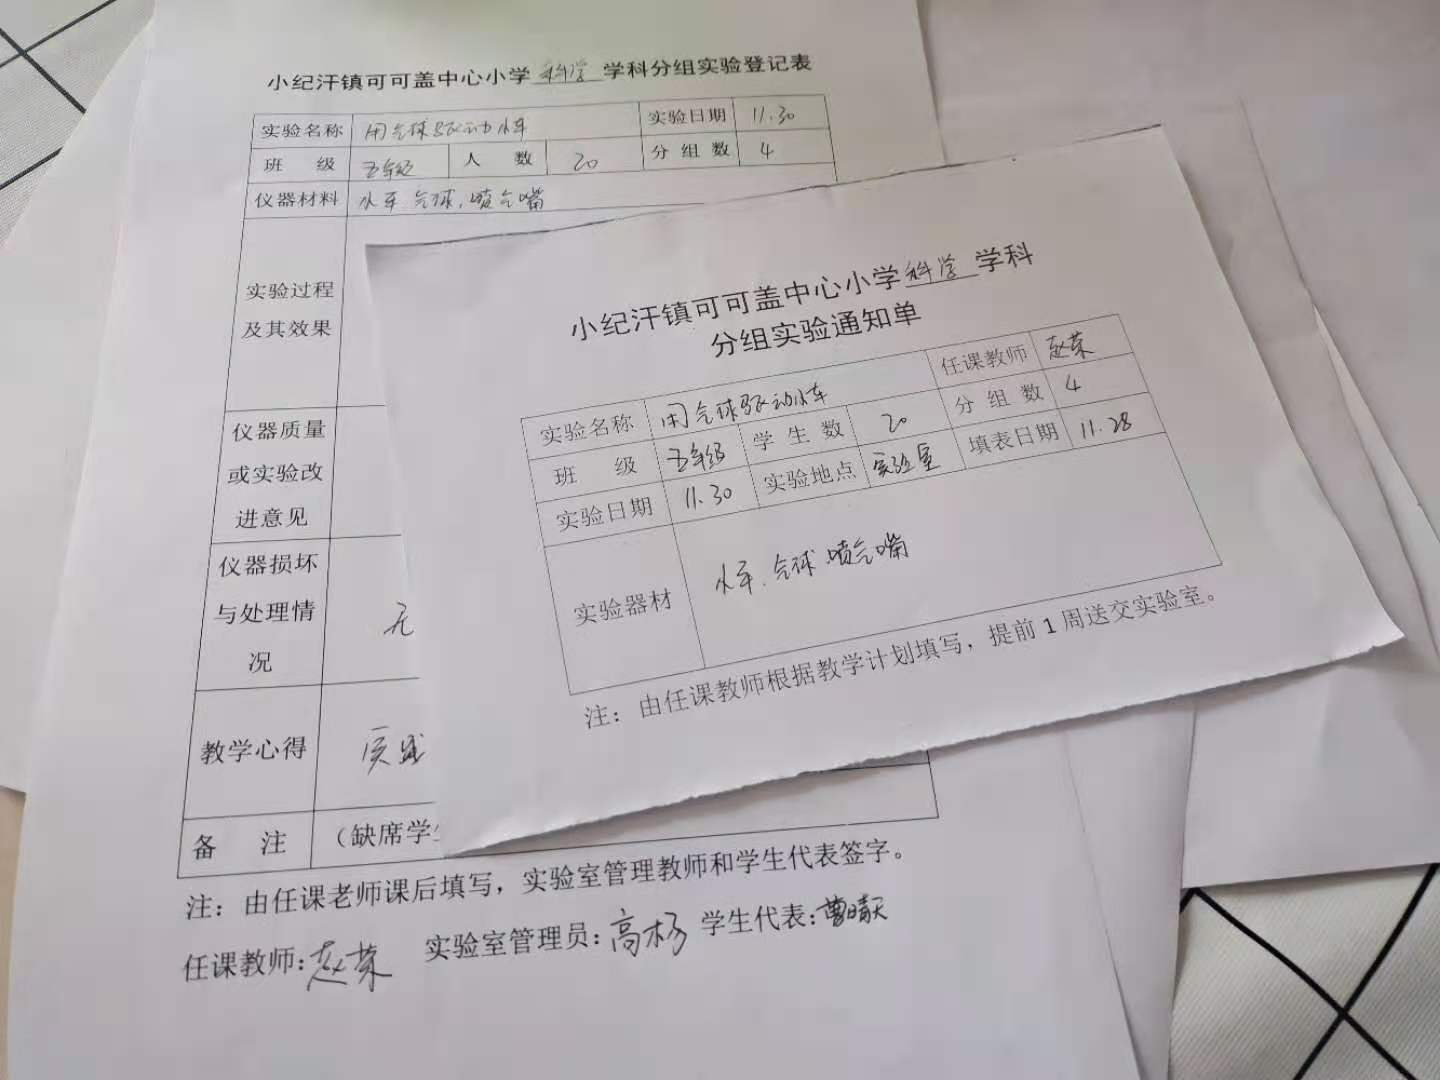 小纪汗镇可可盖中心小学科学学科分组实验登记表
实验名称 用气球驱动小车 实验日期 11.30
班 级 五年级 人 数 20 分组数 4
仪器材料 小车 气球,喷气嘴
实验过程
及其效果
仪器质量
或实验改
进意见
仪器损坏
与处理情 无
况
教学心得
备 注 (缺席学
注:由任课老师课后填写,实验室管理教师和学生代表签字。
任课教师:赵荣 实验室管理员:高杨 学生代表:曹晴天
小纪汗镇可可盖中心小学科学学科
分组实验通知单
实验名称 用气球驱动小车 任课教师 赵荣
班 级 五年级 学生数 20 分组数 4
实验日期 11.30 实验地点 实验室 填表日期 11.28
实验器材 小车、气球、喷气嘴
注:由任课教师根据教学计划填写,提前1周送交实验室。